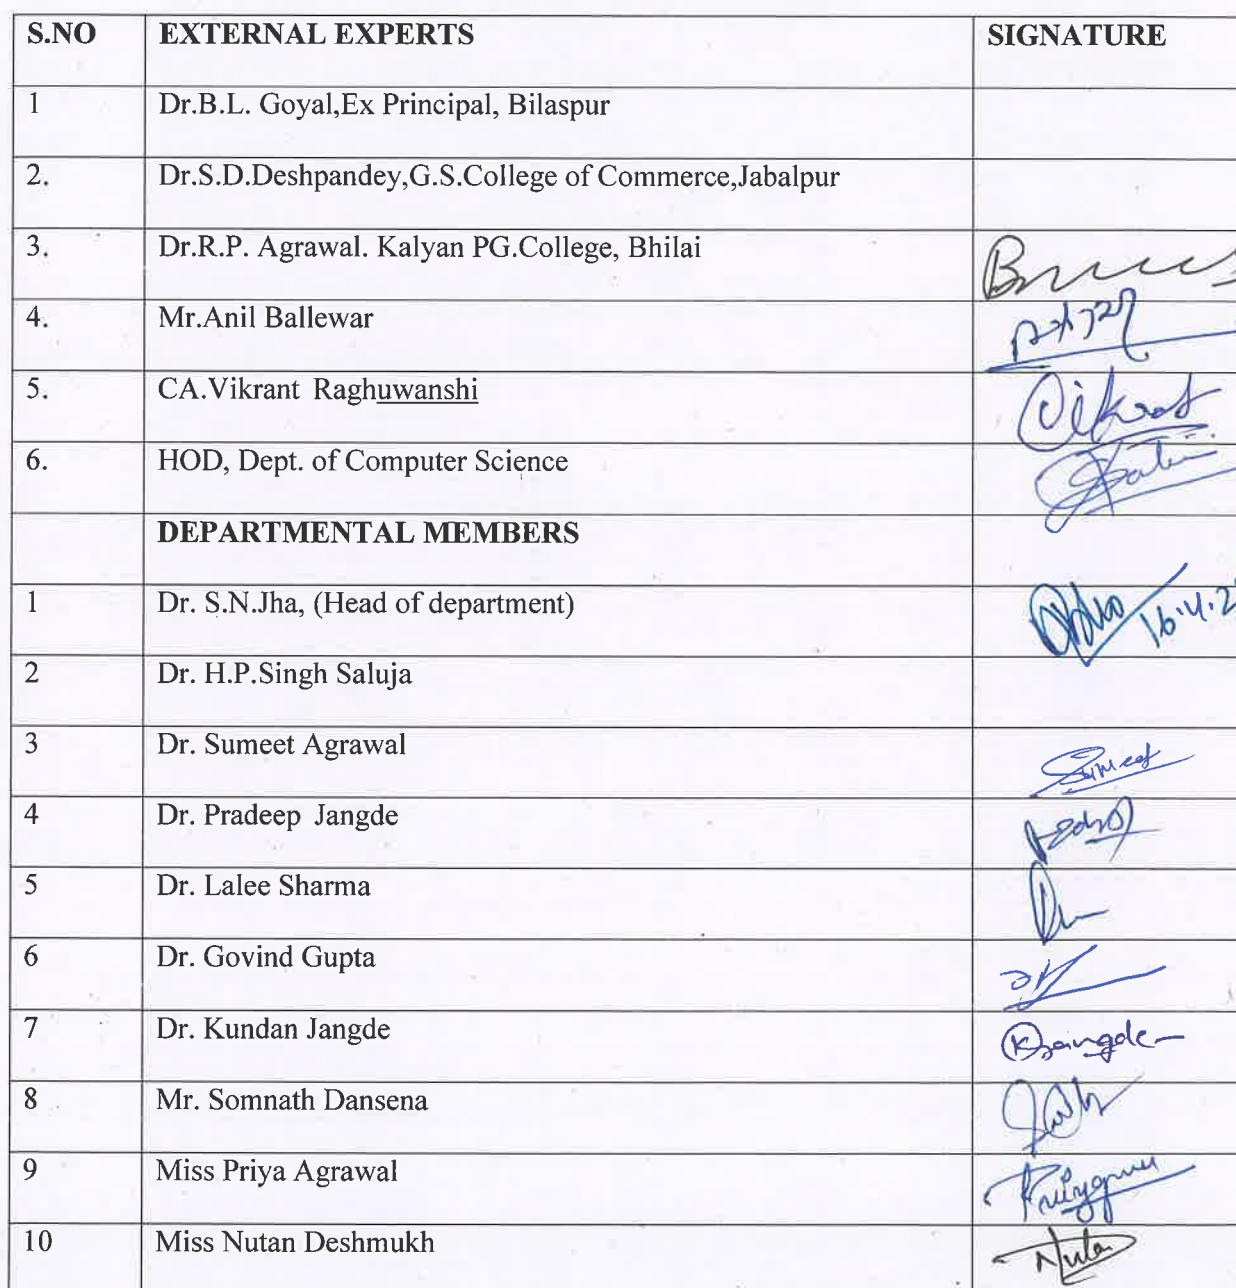 S.NO EXTERNAL EXPERTS SIGNATURE
1 Dr.B.L. Goyal,Ex Principal, Bilaspur
2. Dr.S.D.Deshpandey,G.S.College of Commerce,Jabalpur
3. Dr.R.P. Agrawal. Kalyan PG.College, Bhilai
4. Mr.Anil Ballewar
5. CA.Vikrant Raghuwanshi Vikrant
6. HOD, Dept. of Computer Science
DEPARTMENTAL MEMBERS
1 Dr. S.N.Jha, (Head of department) 16.4.2
2 Dr. H.P.Singh Saluja
3 Dr. Sumeet Agrawal Sumeet
4 Dr. Pradeep Jangde
5 Dr. Lalee Sharma
6 Dr. Govind Gupta
7 Dr. Kundan Jangde KJangde
8 Mr. Somnath Dansena
9 Miss Priya Agrawal
10 Miss Nutan Deshmukh Nutan